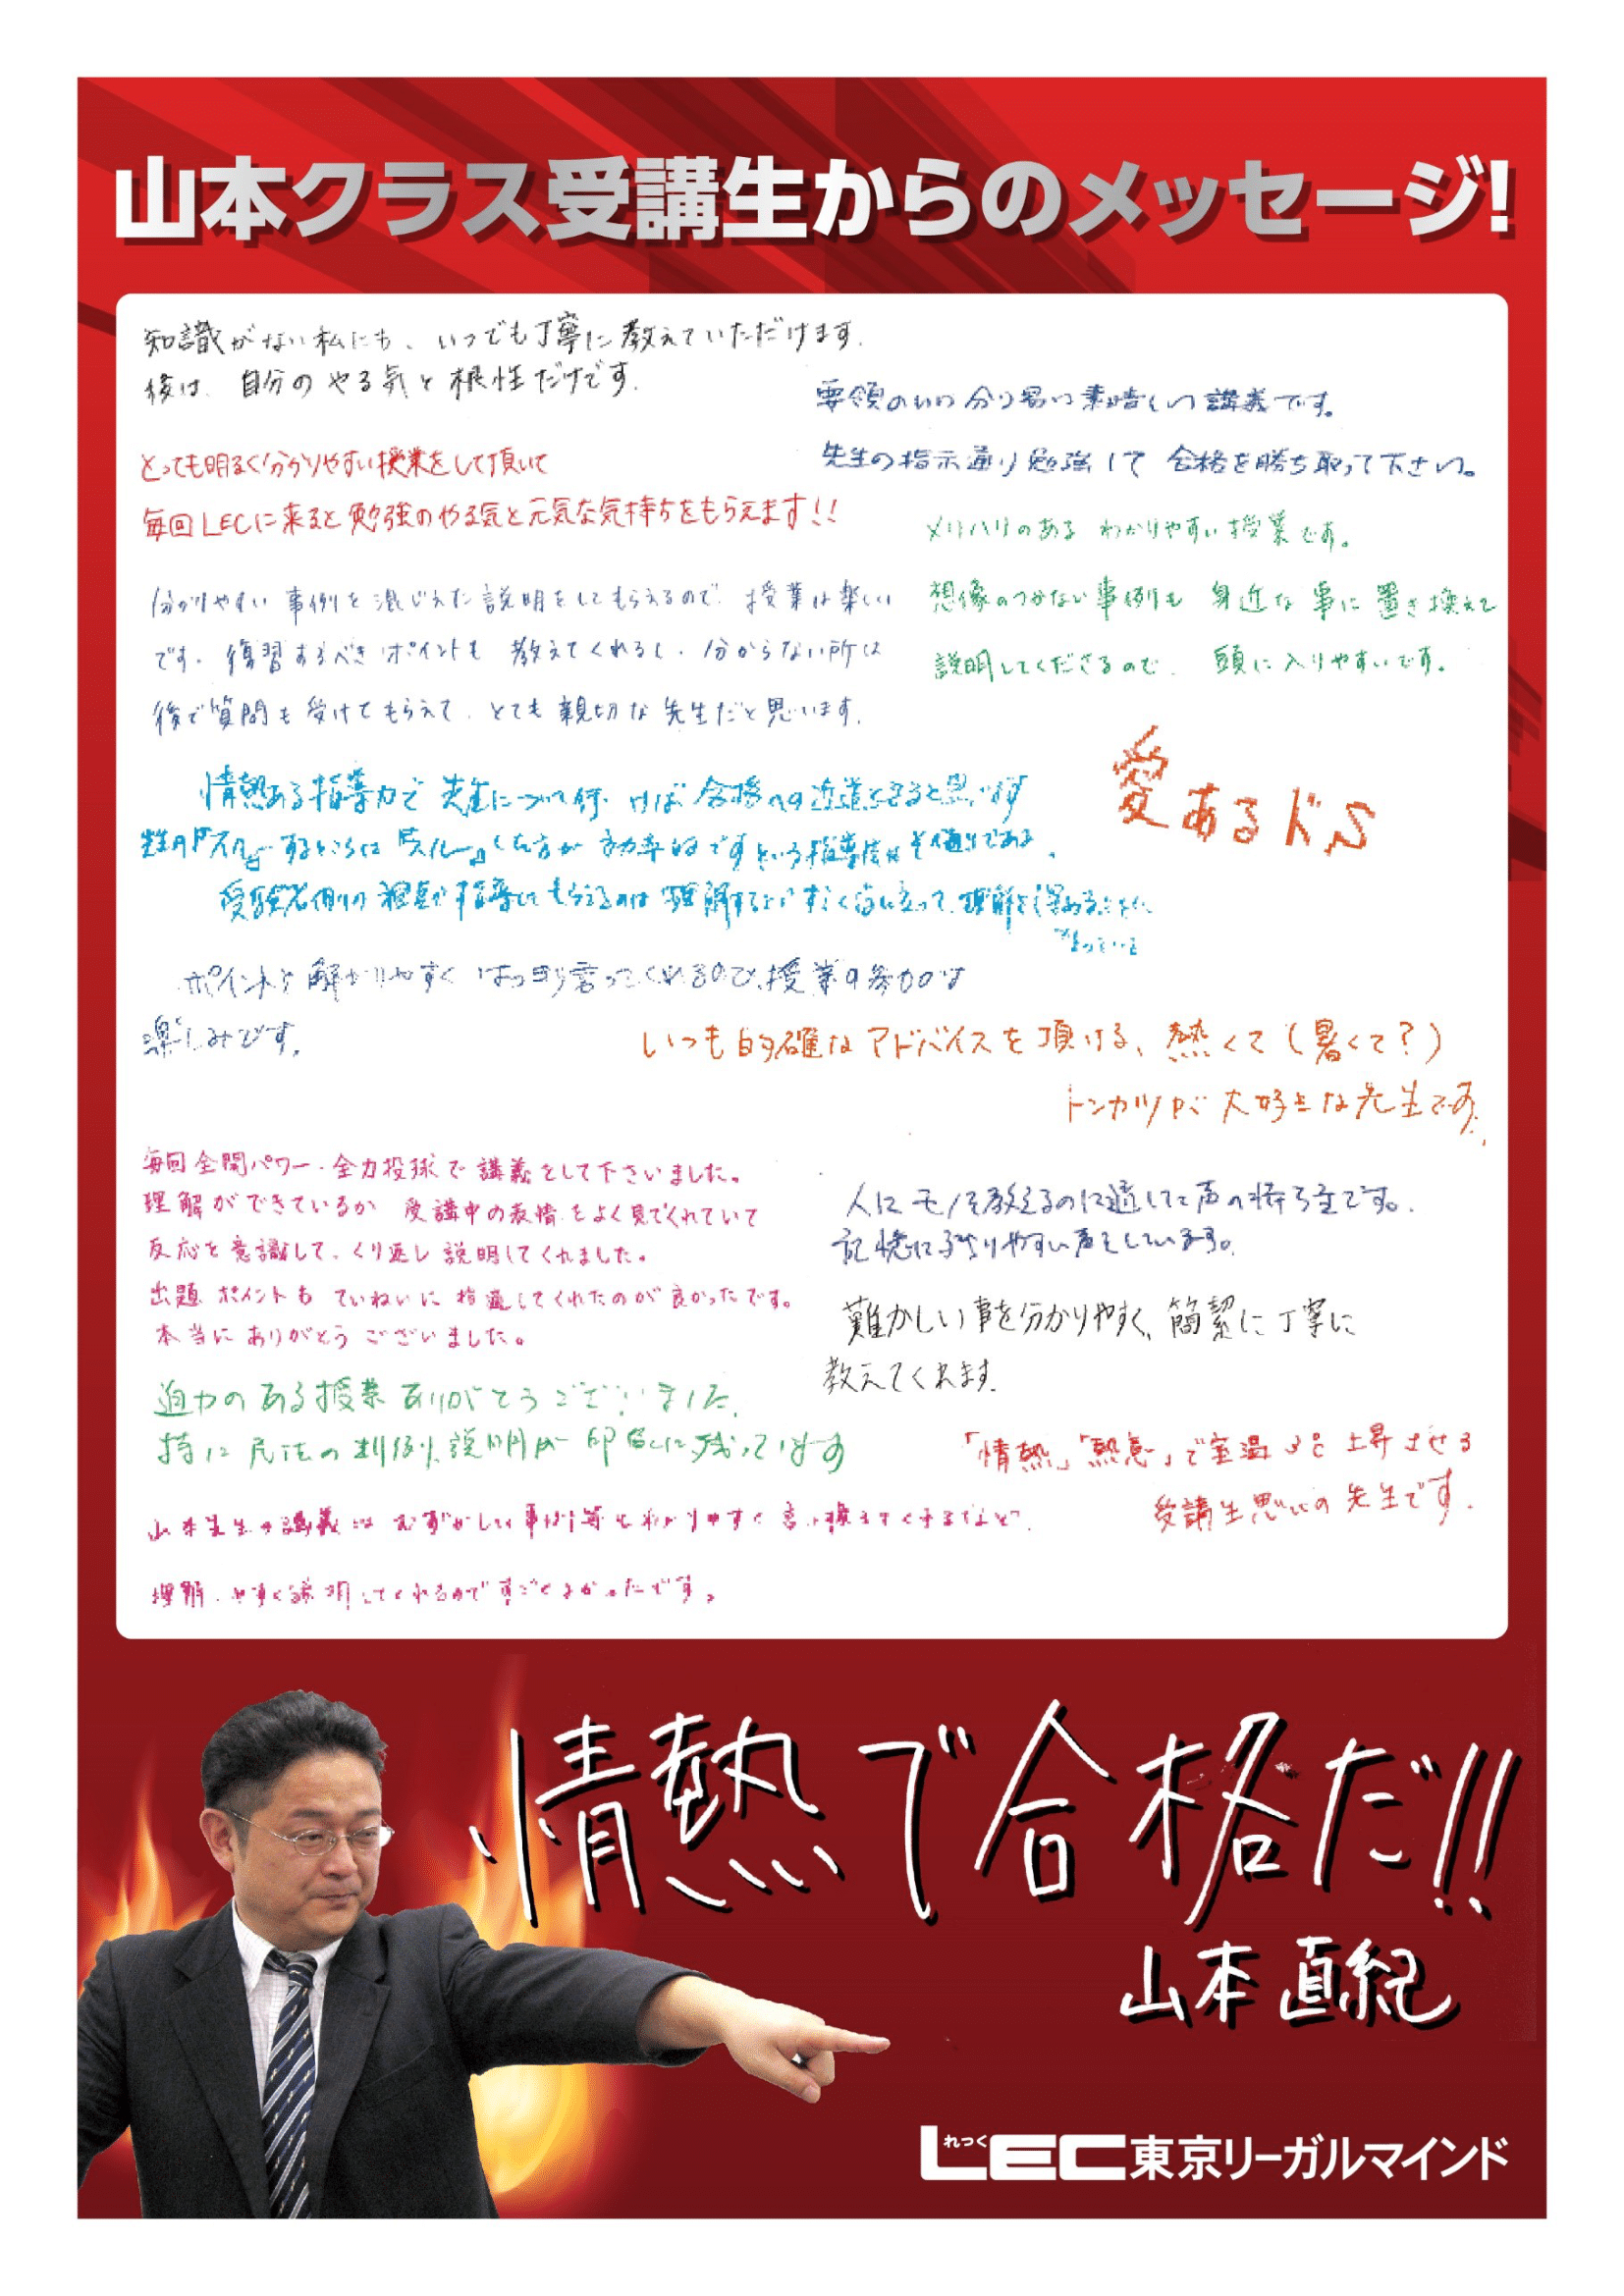 山本クラス受講生からのメッセージ!
知識がない私にも、いつでも丁寧に教えていただけます.
後は、自分のやる気と根性だけです.
要領のいい分り易い素晴しい講義です。
先生の指示通り勉強して合格を勝ち取って下さい。
とっても明るく分かりやすい授業をして頂いて
毎回LECに来ると勉強のやる気と元気な気持ちをもらえます!!
メリハリのあるわかりやすい授業です。
想像のつかない事例も身近な事に置き換えて
説明してくださるので、頭に入りやすいです。
分かりやすい事例を混じえた説明をしてもらえるので、授業は楽しい
です。復習するべきポイントも教えてくれるし、分からない所は
後で質問も受けてもらえて、とても親切な先生だと思います.
愛あるドS
情熱ある指導力で先生について行けば合格への近道となると思います
という指導法はその通りである.
受験者側の視点で指導してもらえるのは
なっている
ポイントを解かりやすくはっきり言ってくれるので、授業の参加は
楽しみです。
いつも的確なアドバイスを頂ける、熱くて(暑くて?)
トンカツが大好きな先生です.
毎回全開パワー・全力投球で講義をして下さいました。
理解ができているか 受講中の表情をよく見てくれていて
反応を意識して、くり返し説明してくれました。
出題ポイントもていねいに指適してくれたのが良かったです。
本当にありがとうございました。
人にモノを教えるのに適した声の持ち主です。
記憶に残りやすい声をしています。
難かしい事を分かりやすく、簡潔に丁寧に
教えてくれます.
迫力のある授業ありがとうございました.
特に民法の判例説明が印象に残っています
「情熱」「熱意」で室温3℃上昇させる
受講生思いの先生です.
山本先生の講義はむずかしい事例等もわかりやすく言い換えてくれるなど、
理解しやすく説明してくれるのですごくよかったです。
情熱で合格だ!!
山本 直紀
れっく
LEC東京リーガルマインド